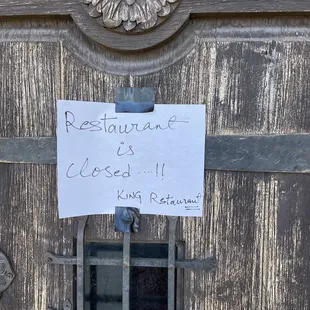 Restaurant
is
Closed....!!
KING Restaurant